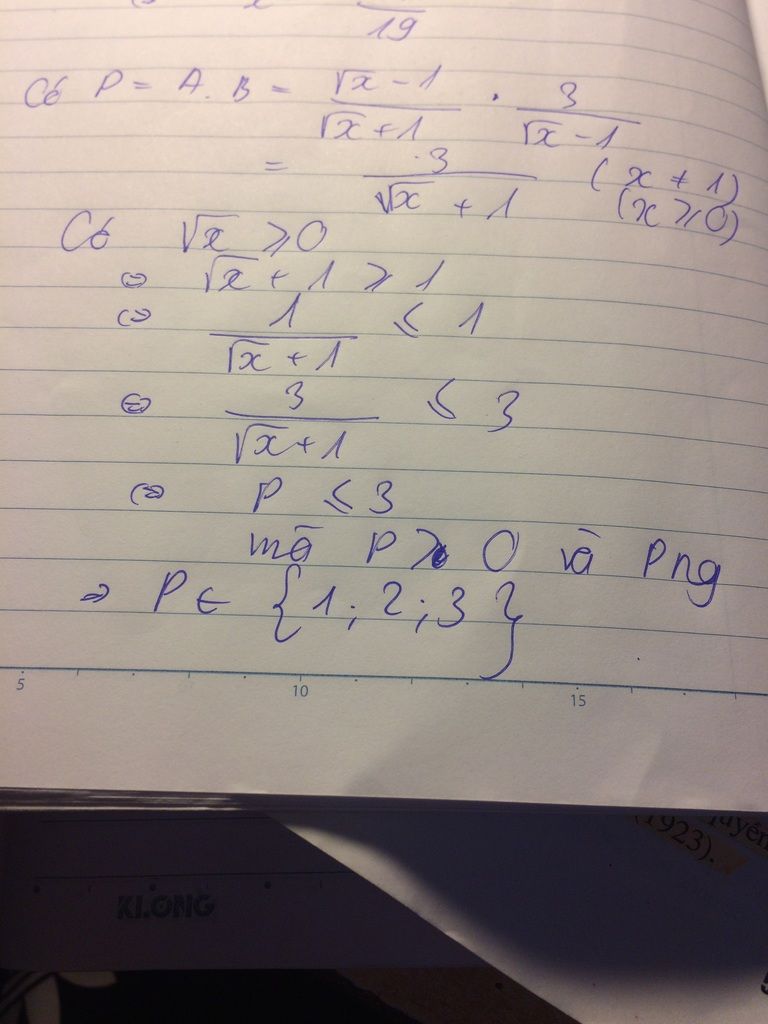 19
Có P = A. B = (√x - 1)/(√x + 1) . 3/(√x - 1)
= 3/(√x + 1) (x ≠ 1)
(x ≥ 0)
Có √x ≥ 0
⇔ √x + 1 ≥ 1
⇔ 1/(√x + 1) ≤ 1
⇔ 3/(√x + 1) ≤ 3
⇔ P ≤ 3
mà P > 0 và P ng
⇒ P ∈ {1; 2; 3}
5 10 15
KLONG
(1923).